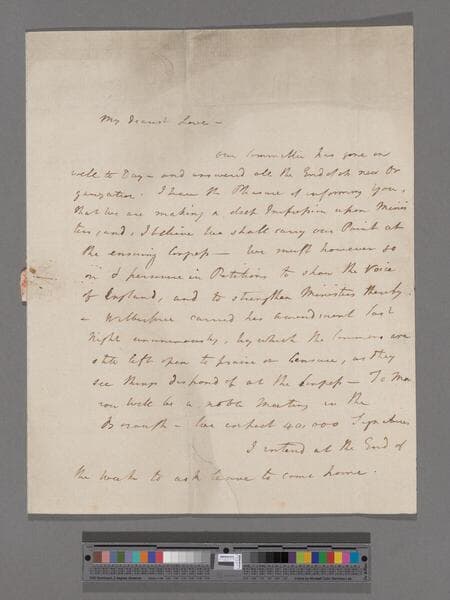 My Dearest Love -
our Committee has gone on
well to Day - and answered all the Ends of its new Or
ganization. I have the Pleasure of informing you,
that we are making a deep Impression upon Minis
ters, and, I believe we shall carry our Point at
the ensuing Congress - We must however go
on & persevere in Petitions to show the Voice
of England, and to strengthen Ministers thereby.
- Wilberforce carried his amendment last
Night unanimously, by which the Commons are
still left open to praise or Censure, as they
see things disposed of at the Congress - To Mor
row will be a noble Meeting in the
Borough - We expect 40,000 Signatures
I intend at the End of
the week to ask leave to come home.